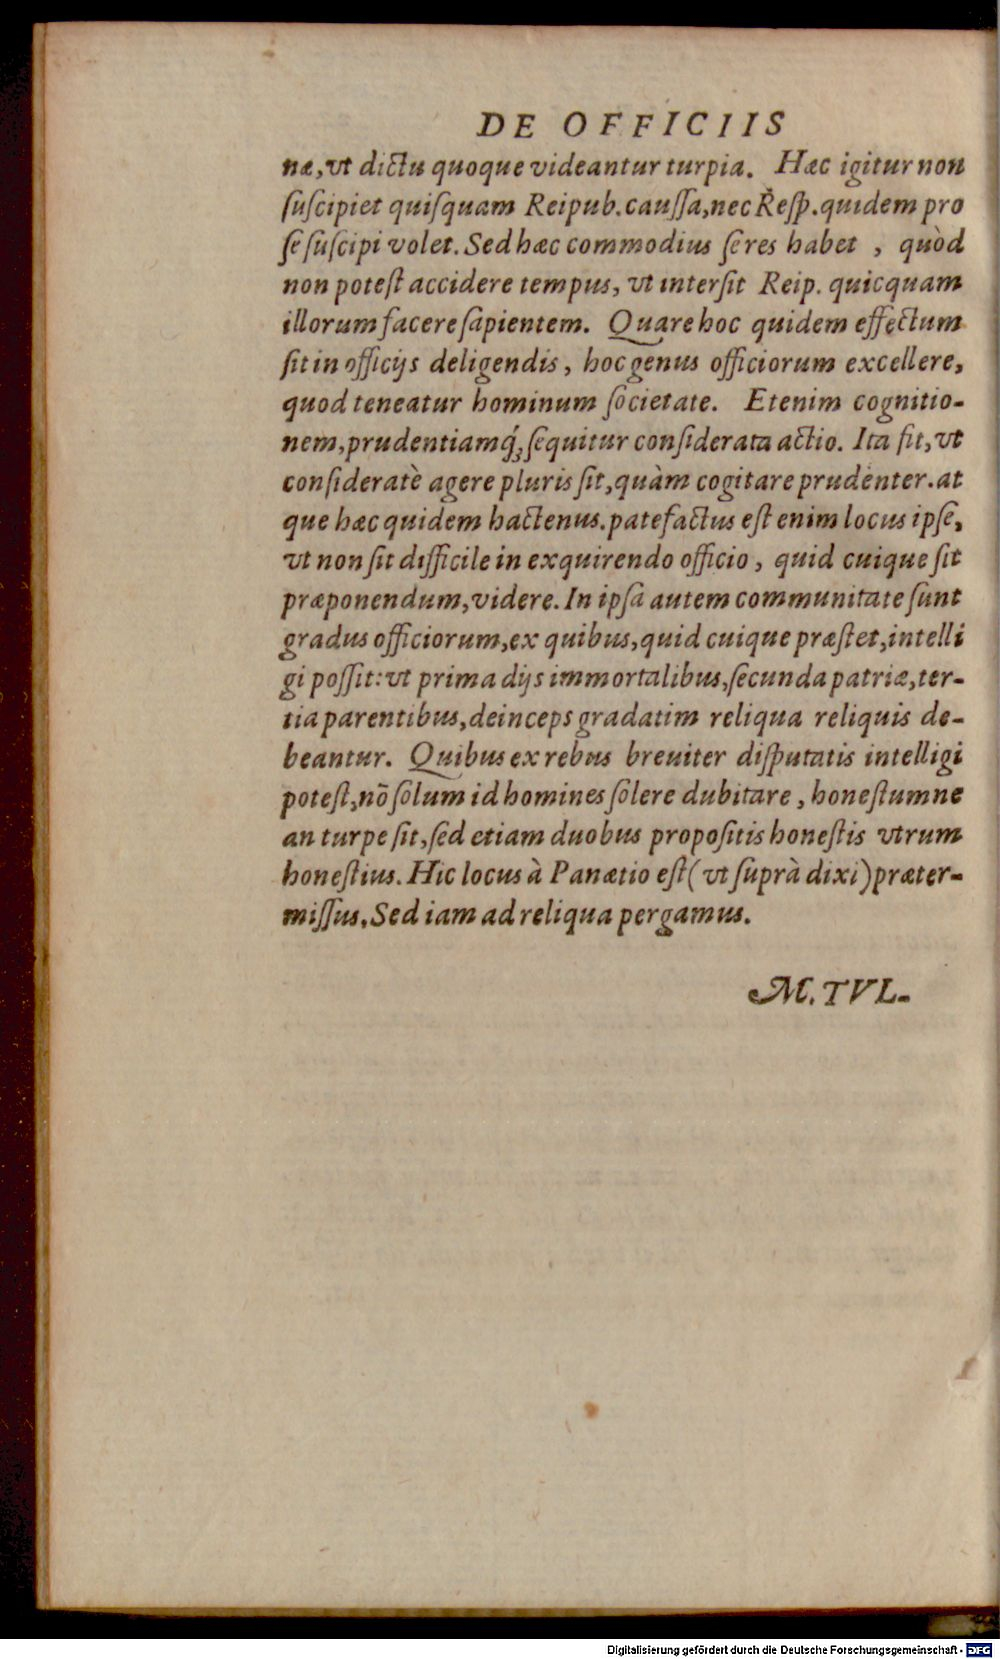 DE OFFICIIS
næ, vt dictu quoque videantur turpia. Hæc igitur non
ſuſcipiet quiſquam Reipub. cauſſa, nec Reſp. quidem pro
ſe ſuſcipi volet. Sed hæc commodius ſe res habet , quòd
non poteſt accidere tempus, vt interſit Reip. quicquam
illorum facere ſapientem. Quare hoc quidem effectum
ſit in officijs deligendis, hoc genus officiorum excellere,
quod teneatur hominum ſocietate. Etenim cognitio-
nem, prudentiamq́; ſequitur conſiderata actio. Ita fit, vt
conſideratè agere pluris ſit, quàm cogitare prudenter. at
que hæc quidem hactenus. patefactus eſt enim locus ipſe,
vt non ſit difficile in exquirendo officio, quid cuique ſit
præponendum, videre. In ipſa autem communitate ſunt
gradus officiorum, ex quibus, quid cuique præſtet, intelli
gi poſſit: vt prima dijs immortalibus, ſecunda patriæ, ter-
tia parentibus, deinceps gradatim reliqua reliquis de-
beantur. Quibus ex rebus breuiter diſputatis intelligi
poteſt, nō ſolum id homines ſolere dubitare, honeſtumne
an turpe ſit, ſed etiam duobus propoſitis honeſtis vtrum
honeſtius. Hic locus à Panætio eſt (vt ſuprà dixi) præter-
miſſus. Sed iam ad reliqua pergamus.
M. TVL-
Digitalisierung gefördert durch die Deutsche Forschungsgemeinschaft - DFG